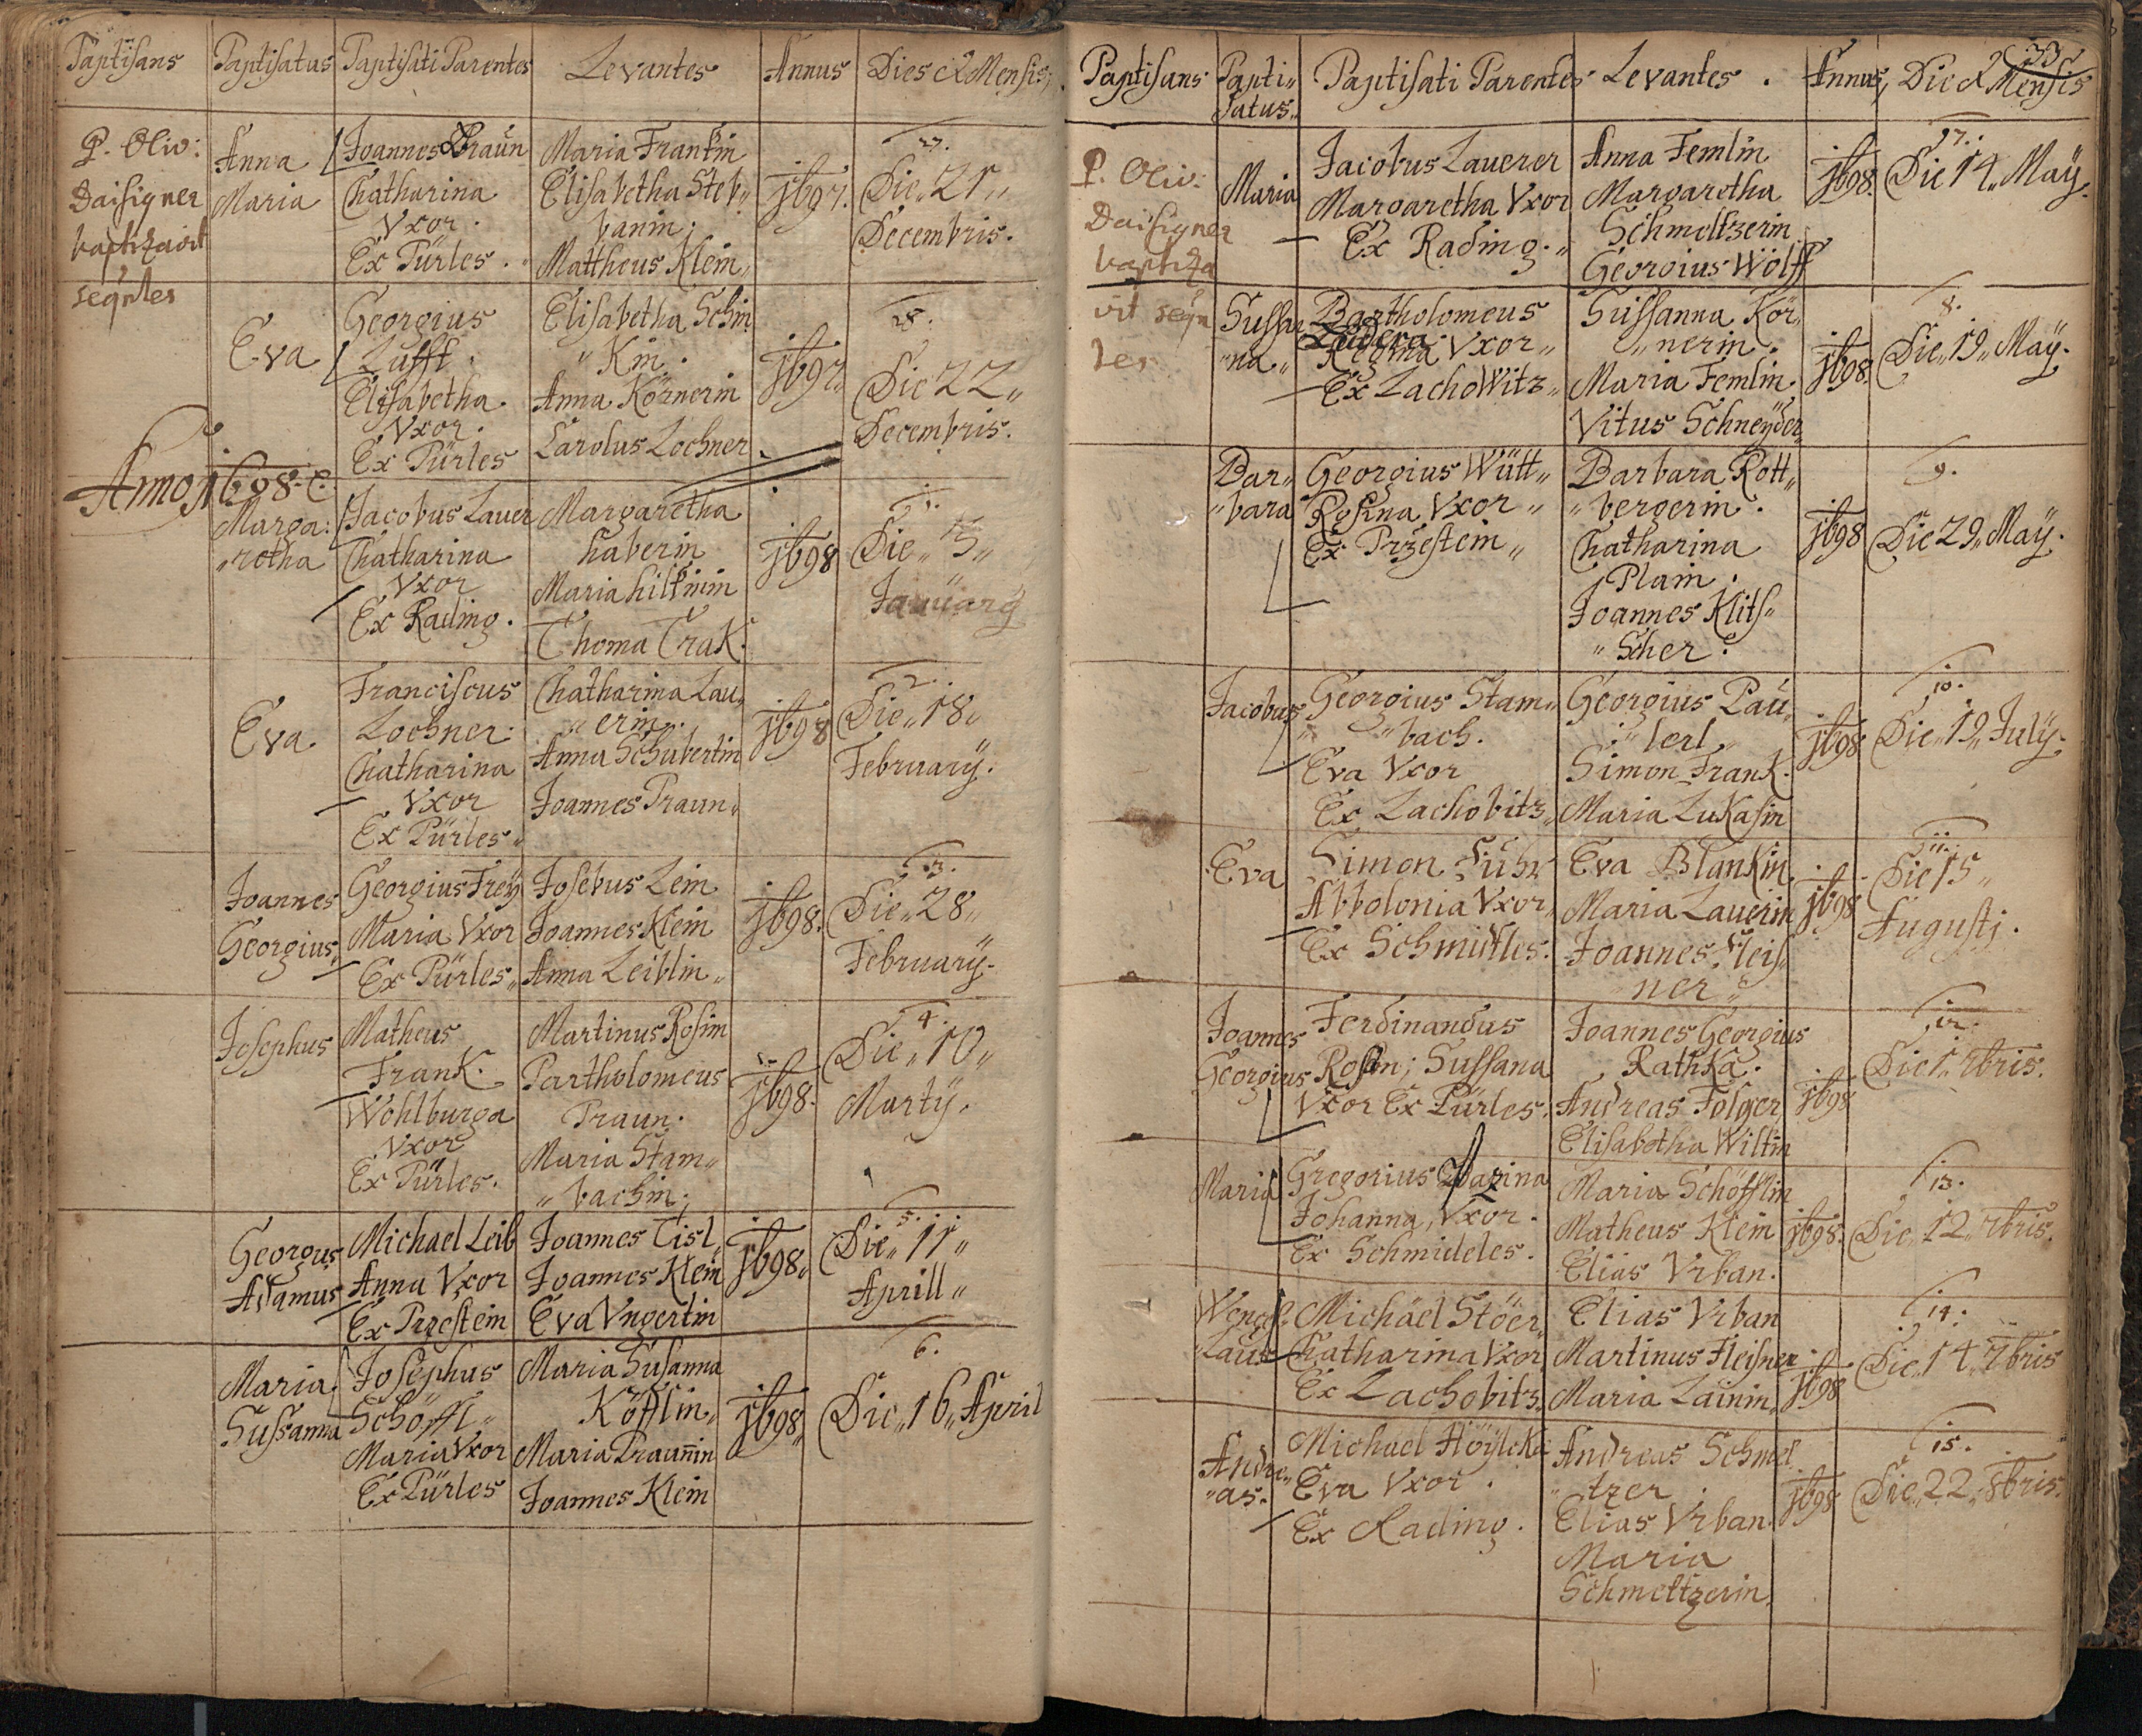 Paptisans Paptisatus Paptisati Parentes Levantes Annus Dies & Mensis
P. Oliv:
Daisigner
baptizavit
seqntes
Anna
Maria
Joannes Braun
Chatharina
Vxor.
Ex Pürles.
Maria Frankin
Elisabetha Steb„
banin.
Mattheus Klein„
1697.
27.
Die„ 21„
Decembris.
Eva
Georgius
Lufft.
Elisabetha.
Vxor.
Ex Pürles
Elisabetha Schin
„Kin.
Anna Körnerin
Carolus Lochner
1697„
28.
Die 22„
Decembris.
Anno 1698.
Marga:
„retha
Jacobus Lauer
Chatharina
Vxor
Ex Rading.
Margaretha
haberin
Maria hilknin
Thoma Trak.
1698
1.
Die„ 15„
January
Eva
Franciscus
Lochner.
Chatharina
Vxor
Ex Pürles„
Chatharina Lau„
„erin„.
Anna Schubertin
Joannes Praun„
1698
2.
Die„ 18„
February.
Joannes
Georgius„
Georgius Frey
Maria Vxor
Ex Pürles„
Josebus Lein
Joannes Klein
Anna Leiblin„
1698.
3.
Die„ 28„
February.
Josephus
Matheus
Frank.
Wohlburga
Vxor
Ex Pürles.
Martinus Rosim
Partholomeus
Praun.
Maria Stam„
„bachin.
1698.
4.
Die„ 10„
Marty.
Georgius
Adamus
Michael Leib
Anna Vxor
Ex Przestein
Joannes Tisl„
Joannes Klein
Eva Vngertin
1698„
5.
Die„ 11„
Aprill„
Maria
Sussanna
Josephus
Schöffl„
Maria Vxor
Ex Pürles
Maria Susanna
Köfflin„
Maria Praunin
Joannes Klein
1698„
6.
Die„ 16„ April
33
Paptisans Papti„ Paptisati Parentes Levantes. Annus, Die & Mensis
satus„
P. Oliv:
Daisigner
baptiza
vit seqn
tes
Maria
Jacobus Lauerer
Margaretha Vxor
Ex Rading.„
Anna Femlin
Margaretha
Schmeltzerin
Georgius Wölff
1698.
7.
Die 14„ May.
Sussa
„na„
Bartholomeus
Regina Vxor„
Ex Lachowitz„
Sussanna Kör„
„nerin.
Maria Femlin.
Vitus Schneyder
1698.
8.
Die„ 19„ May.
Bar„
„bara
Georgius Wütt„
Rosina Vxor„
Ex Przestein„
Barbara Rott„
„bergerin.
Chatharina
Plain.
Joannes Klits„
„Scher.
1698
9.
Die 29„ May.
Jacobus
Georgius Stam„
„bach.
Eva Vxor
Ex Lachobitz„
Georgius Pau„
„lerl„
Simon Frank.
Maria Lukasin
1698
10.
Die„ 19„ July.
Eva
Simon Führ
Abbolonia Vxor„
Ex Schmidles.
Eva Blankin
Maria Lauerin
Joannes Fleis„
ner„
1698
11.
Die 15„
Augusti.
Joannes
Georgius
Ferdinandus
Rosin; Sussana
Vxor Ex Pürles.
Joannes Georgius
Rathka.
Andreas Folger
Elisabetha Wiltin
1698
12.
Die 1„ 7bris.
Maria
Gregorius Wazina
Johanna, Vxor.
Ex Schmideles.
Maria Schöfflin
Matheus Klein
Elias Vrban.
1698.
13.
Die„ 12„ 7bris.
Wences„
„laus
Michäel Stöer„
Chatharina Vxor
Ex Lachobitz„
Elias Vrban
Martinus Fleisner
Maria Lainin„
1698
14.
Die„ 14„ 7bris
Andre„
„as.
Michael Höylcka
Eva Vxor.
Ex Rading.
Andreas Schmel
„tzer.
Elias Vrban
Maria
Schmeltzerin.
1698
15.
Die„ 22„ 8bris.